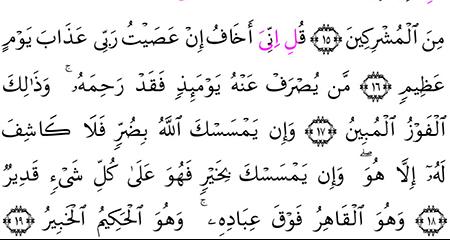 مِنَ ٱلْمُشْرِكِينَ ١٥ قُلِ اِنِّيَ أَخَافُ إِنْ عَصَيْتُ رَبِّى عَذَابَ يَوْمٍ
عَظِيمٍ ١٦ مَّن يُصْرَفْ عَنْهُ يَوْمَئِذٍ فَقَدْ رَحِمَهُۥۚ وَذَٰلِكَ
ٱلْفَوْزُ ٱلْمُبِينُ ١٧ وَإِن يَمْسَسْكَ ٱللَّهُ بِضُرٍّ فَلَا كَاشِفَ
لَهُۥٓ إِلَّا هُوَۖ وَإِن يَمْسَسْكَ بِخَيْرٍ فَهُوَ عَلَىٰ كُلِّ شَىْءٍ قَدِيرٌ
١٨ وَهُوَ ٱلْقَاهِرُ فَوْقَ عِبَادِهِۦۚ وَهُوَ ٱلْحَكِيمُ ٱلْخَبِيرُ ١٩